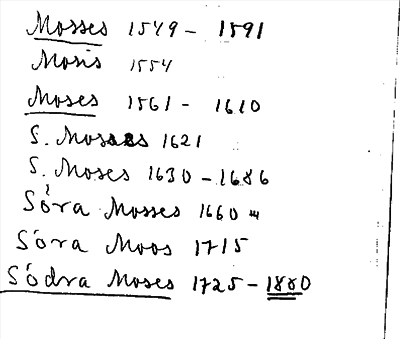 Mosses 1549 - 1591
Mosis 1554
Moses 1561 - 1610
S. Mosses 1621
S. Moses 1630 - 1686
Sóra Mosses 1660
Sóra Moos 1715
Södra Moses 1725 - 1880